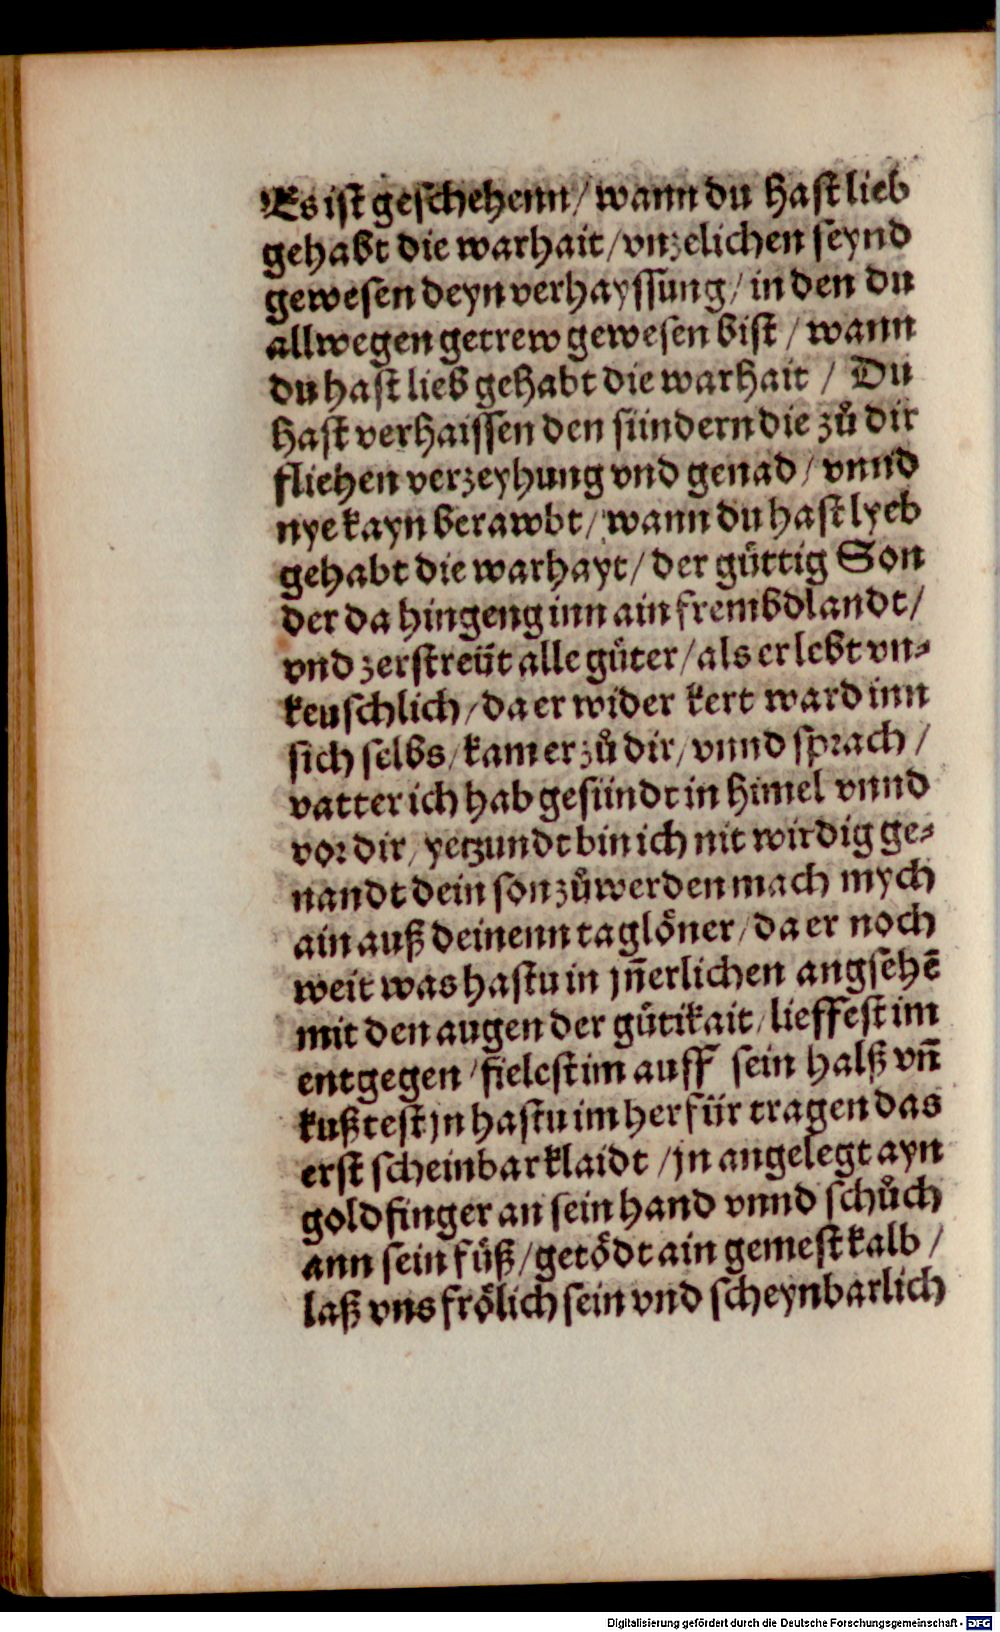 Es ist geschehenn / wann du hast lieb
gehabt die warhait / vnzelichen seynd
gewesen deyn verhayssung / in den du
allwegen getrew gewesen bist / wann
du hast lieb gehabt die warhait / Du
hast verhaissen den sündern die zů dir
fliehen verzeyhung vnd genad / vnnd
nye kayn berawbt / wann du hast lyeb
gehabt die warhayt / der gůttig Son
der da hingeng inn ain frembd landt /
vnd zerstreüt alle gůter / als er lebt vn⸗
keuschlich / da er wider kert ward inn
sich selbs / kam er zů dir / vnnd sprach /
vatter ich hab gesündt in himel vnnd
vor dir / yetzundt bin ich nit wirdig ge⸗
nandt dein son zůwerden mach mych
ain auß deinenn taglöner / da er noch
weit was hastu in jn̄erlichen angsehē
mit den augen der gůtikait / lieffest im
entgegen / fielest im auff sein halß vn̄
kußtest jn hastu im herfür tragen das
erst scheinbar klaidt / jn angelegt ayn
goldfinger an sein hand vnnd schůch
ann sein füß / getödt ain gemest kalb /
laß vns frölich sein vnd scheynbarlich
Digitalisierung gefördert durch die Deutsche Forschungsgemeinschaft - DFG